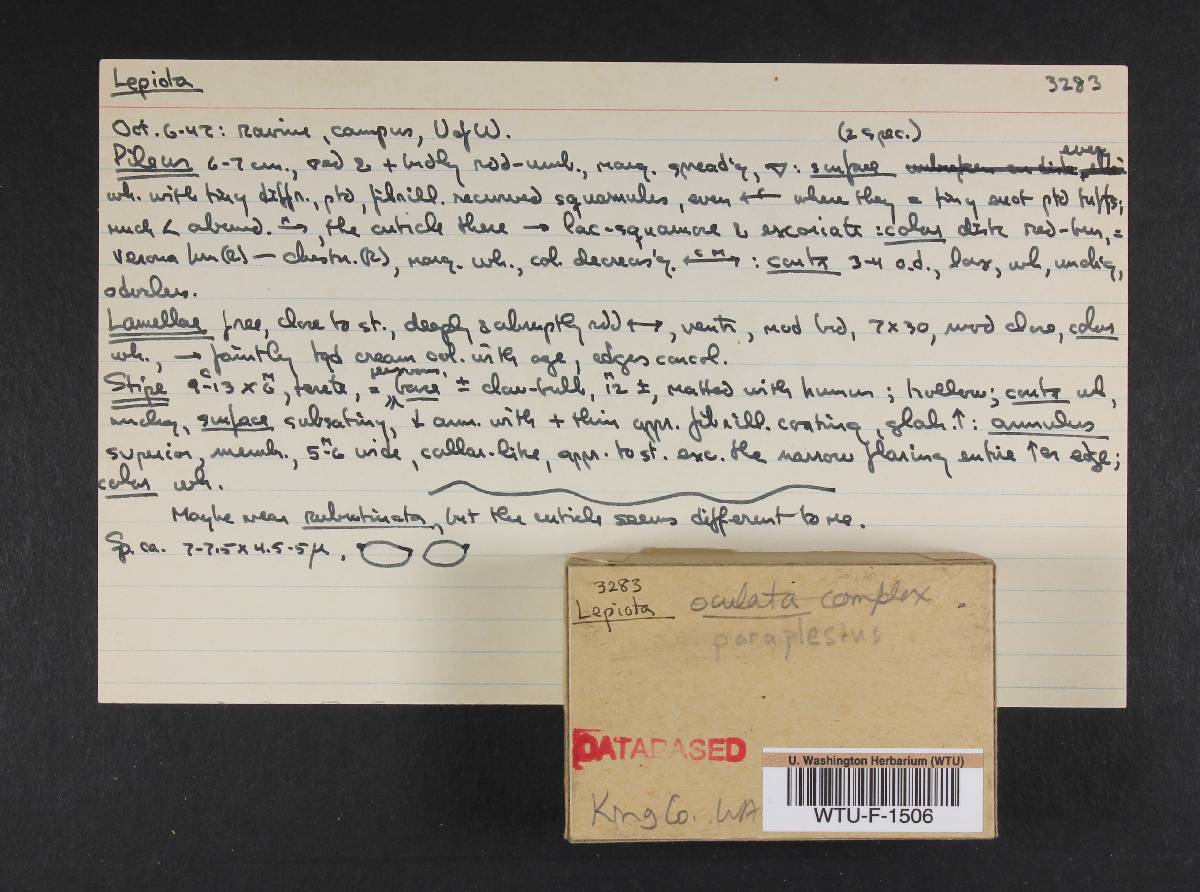 Lepiota 3283
Oct. 6-47: Ravine, campus, U of W. (2 spec.)
Pileus 6-7 cm., & + umb., marg. spread'g, ▽: surface even
wh. with tiny diffr., ptd, fibrill. recurved squamules, even where they = tiny erect ptd tufts;
much < abund. →, the cuticle there → lac-squamose & excoriate: color disk red-brn, =
verona brn (R) — chestn. (R), marg. wh., col. decreas'g. ↔: contx 3-4 o.d., lax, wh, unchg,
odorless.
Lamellae free, close to st., deeply & abruptly ↔, ventr, mod brd, 7 x 30, mod close, color
wh., → faintly tgd cream col. with age, edges concol.
Stipe 9-13 x 6, terete, = base ± clav-bulb, 12 ±, matted with humus; hollow; contx wh,
unchg, surface subsatiny, ↓ ann. with + thin appr. fibrill. coating, glab. ↑: annulus
superior, memb., 5-6 wide, collar-like, appr. to st. exc. the narrow flaring entire ↑ er edge;
color wh.
Maybe near rubrotincta, but the cuticle seems different to me.
Sp. ca. 7-7.5 x 4.5-5 µ,
3283
Lepiota oculata complex
paraplesius
DATABASED
King Co. WA
U. Washington Herbarium (WTU)
WTU-F-1506